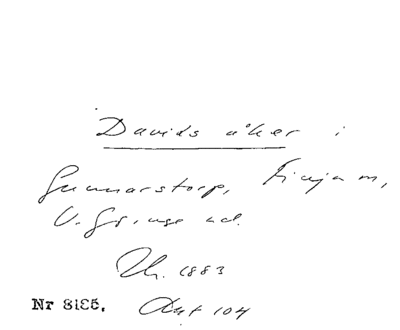 Davids åker i
Gunnarstorp, Finja m,
V. Göinge hd.
Th. 1883
Nr 8185. Akt 104